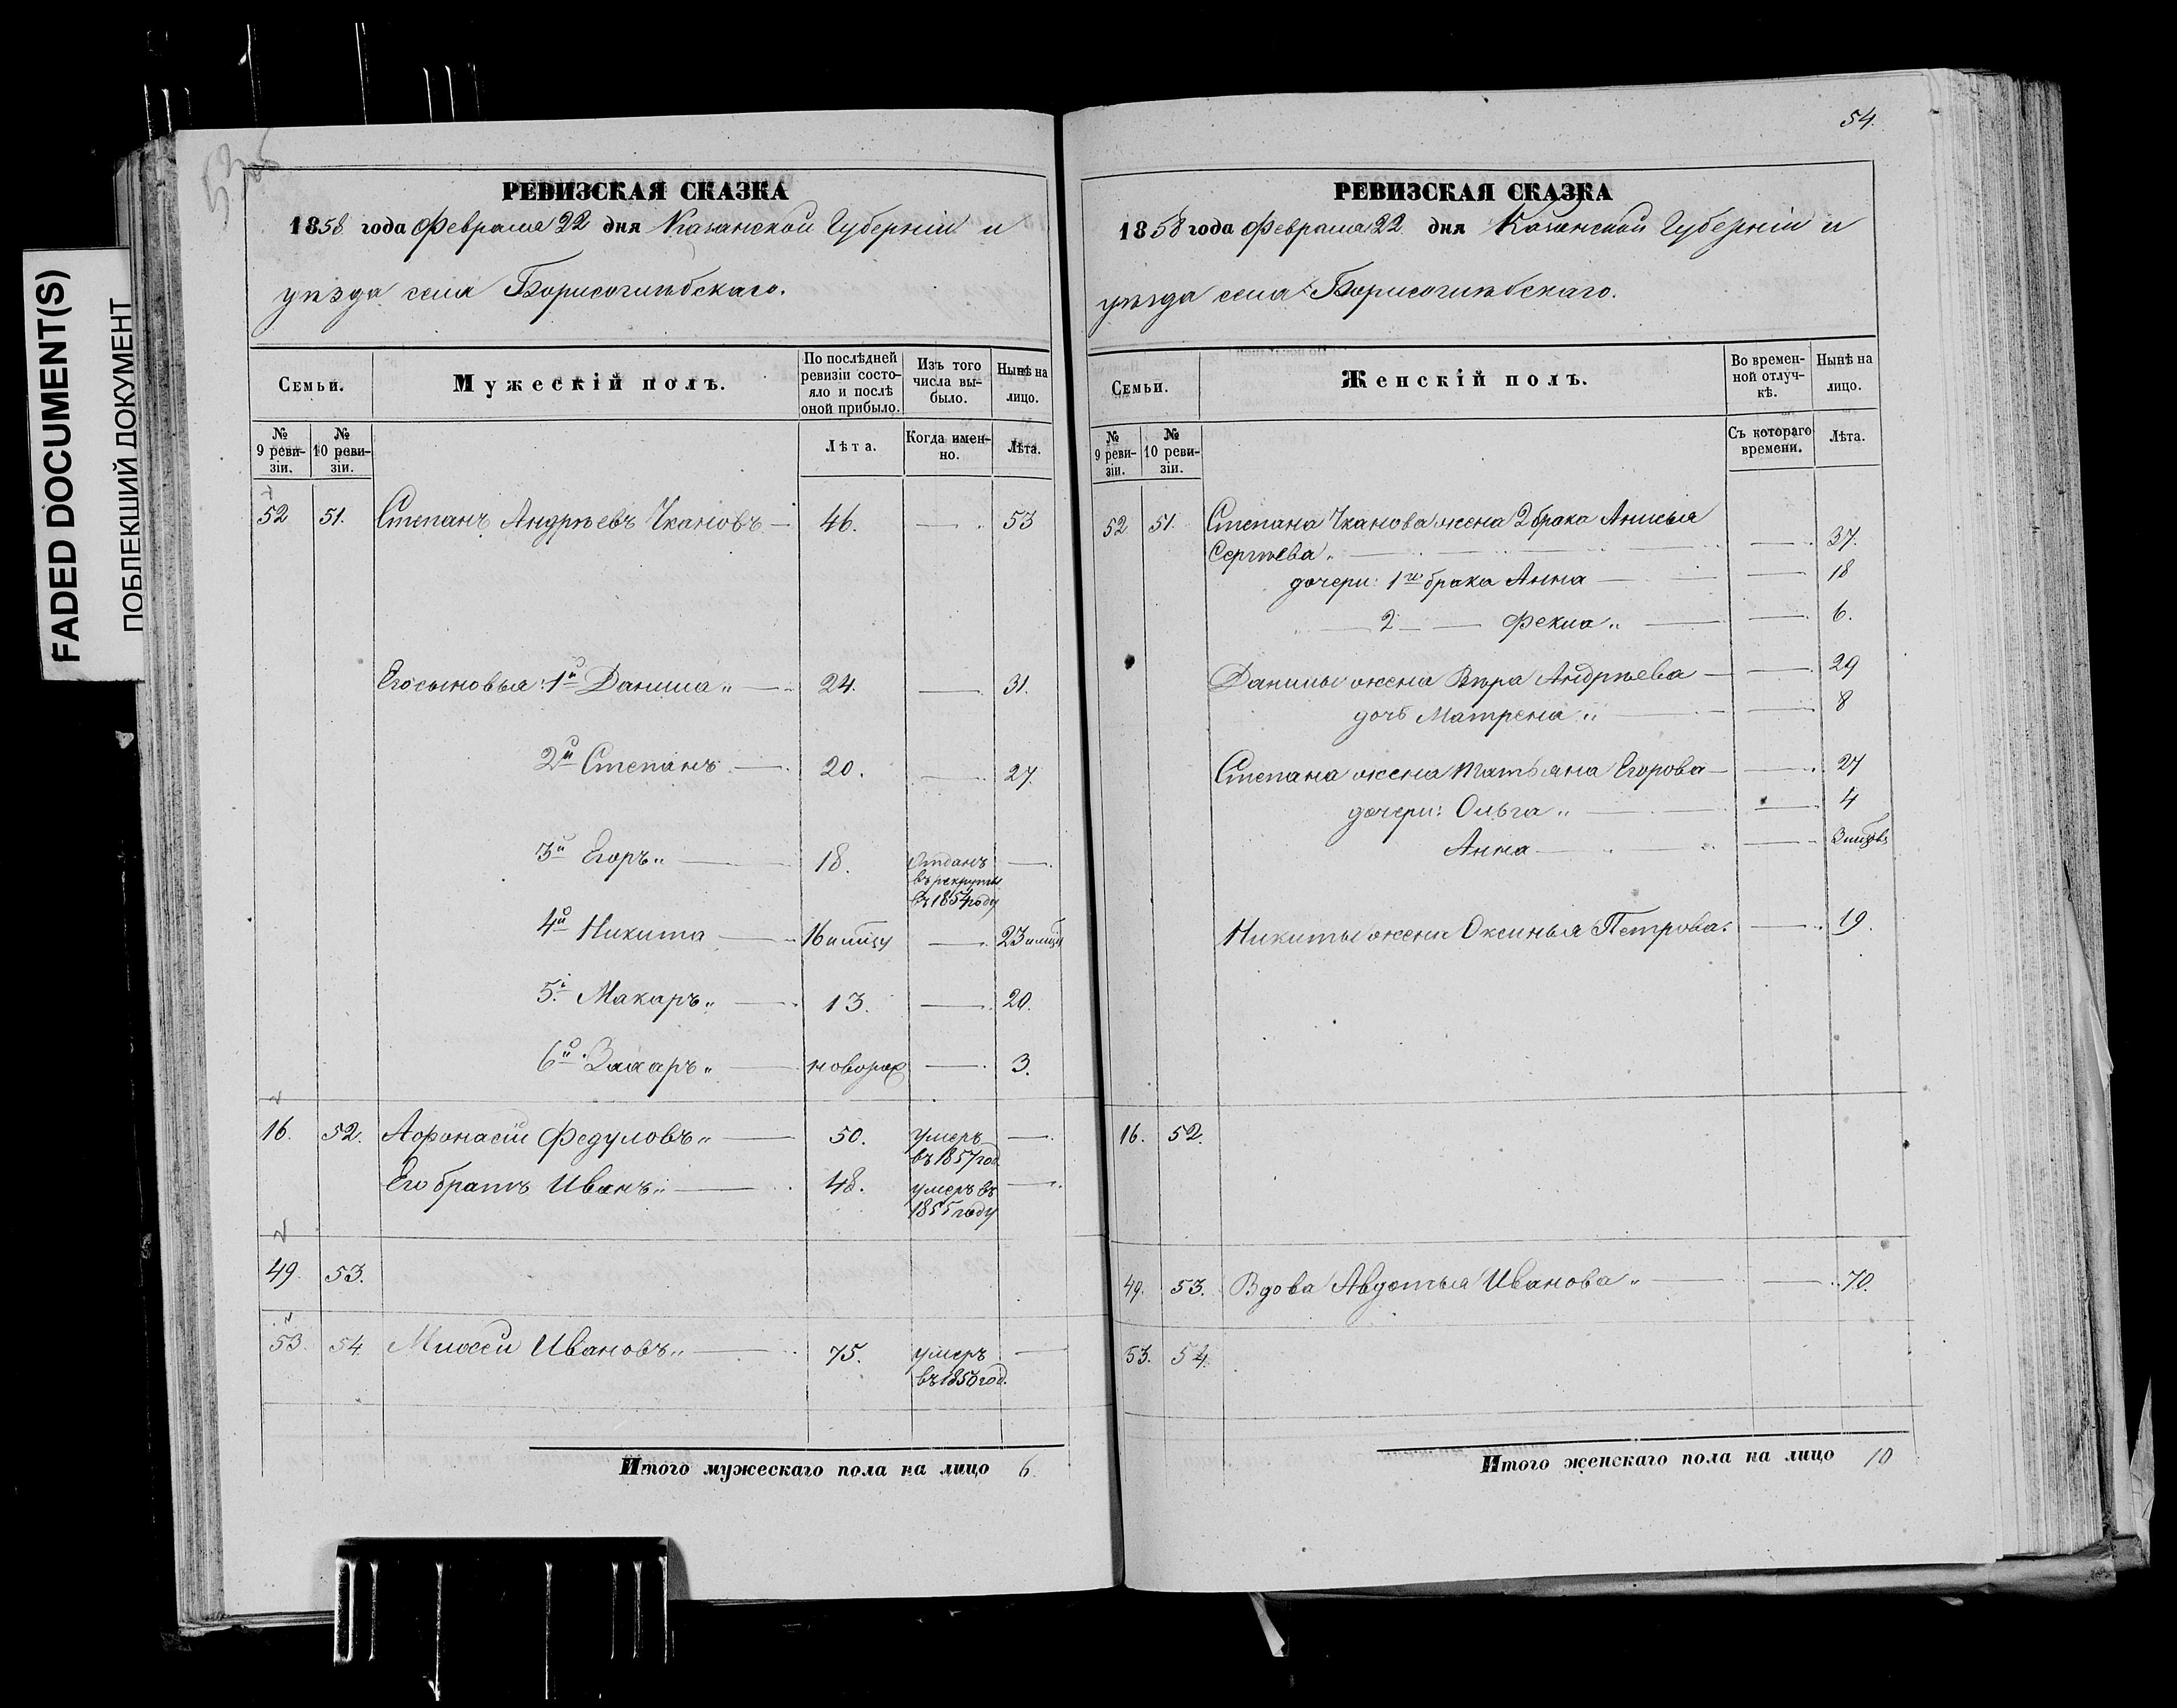 FADED DOCUMENT(S)
ПОБЛЕКШИЙ ДОКУМЕНТ
РЕВИЗСКАЯ СКАЗКА
1858 года Февраля 22 дня Казанской Губерніи и
уѣзда села Борисоглѣбскаго.
Семьи.
Мужескій полъ.
По послѣдней ревизіи состояло и послѣ оной прибыло.
Изъ того числа выбыло.
Нынѣ на лицо.
№ 9 ревизіи.
№ 10 ревизіи.
Лѣта.
Когда именно.
Лѣта.
52 51. Степанъ Андрѣевъ Чкановъ — 46. — 53
Его сыновья: 1й Данила „ — 24. — 31.
2й Степанъ — 20. — 27.
3й Егоръ „ — 18. Отданъ въ рекруты въ 1854 году —
4й Никита — 16 — 23
5й Макаръ „ — 13. — 20.
6й Захаръ „ — новорож — 3.
16. 52. Афонасій Федуловъ „ — 50. умеръ въ 1857 год. —
Его братъ Иванъ „ — 48. умеръ въ 1855 году —
49. 53.
53. 54. Мосей Ивановъ „ — 75. умеръ въ 1856 год. —
Итого мужескаго пола на лицо 6.
54.
РЕВИЗСКАЯ СКАЗКА
1858 года Февраля 22 дня Казанской Губерніи и
уѣзда села Борисоглѣбскаго.
Семьи.
Женскій полъ.
Во временной отлучкѣ.
Нынѣ на лицо.
№ 9 ревизіи.
№ 10 ревизіи.
Съ котораго времени.
Лѣта.
52 51. Степана Чканова жена 2 брака Анисья
Сергѣева „ — — 37.
дочери: 1го брака Анна — — 18
2 — Фекла „ — — 6.
Данилы жена Вѣра Андрѣева — — 29
дочь Матрена „ — — 8
Степана жена Татьяна Егорова — — 27
дочери: Ольга „ — — 4
Анна — —
Никиты жена Оксинья Петрова. — 19.
16. 52.
49. 53. Вдова Авдотья Иванова „ — — 70.
53. 54.
Итого женскаго пола на лицо 10